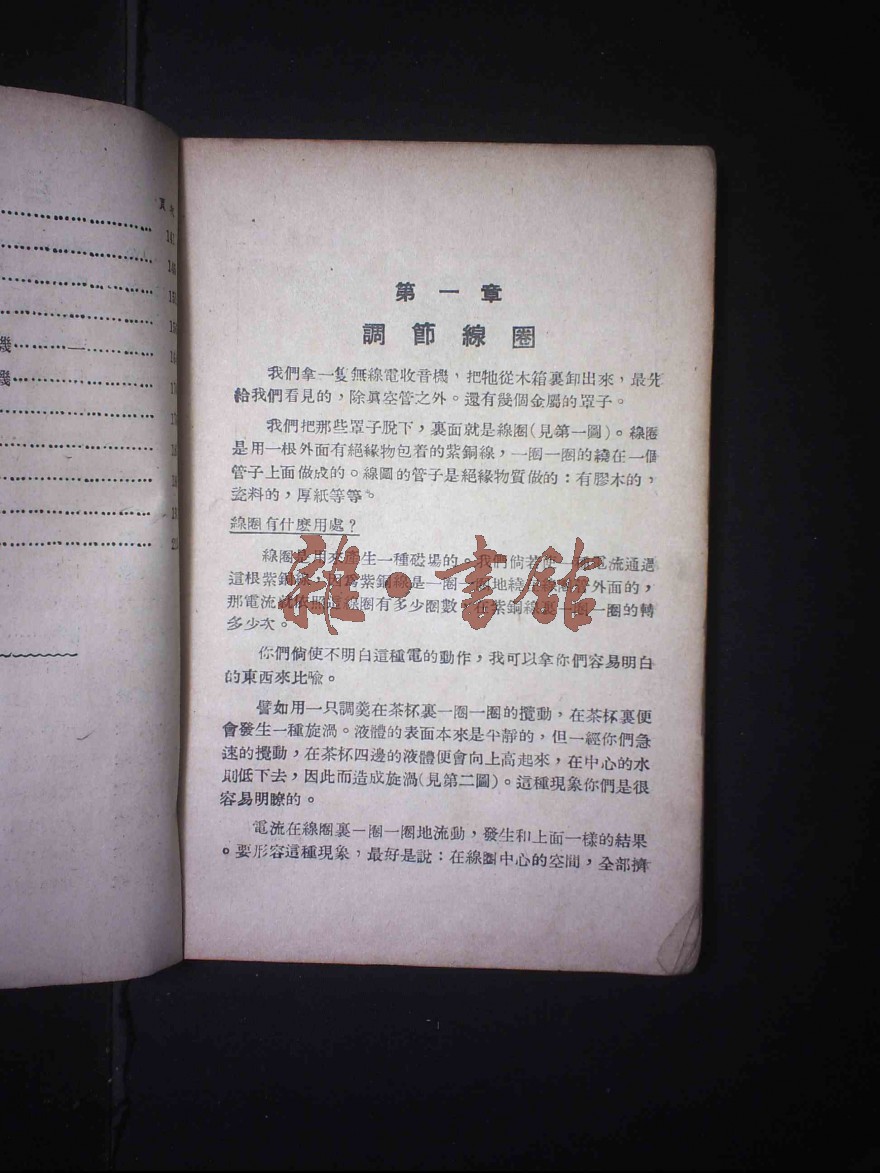 頁
機
機
第一章
調節線圈
我們拿一隻無線電收音機，把牠從木箱裏卸出來，最先
給我們看見的，除眞空管之外。還有幾個金屬的罩子。
我們把那些罩子脫下，裏面就是線圈(見第一圖)。線圈
是用一根外面有絕緣物包着的紫銅線，一圈一圈的繞在一個
管子上面做成的。線圈的管子是絕緣物質做的：有膠木的，
瓷料的，厚紙等等。
線圈有什麽用處？
線圈是用來產生一種磁場的。我們倘若使一種電流通過
這根紫銅線，因爲紫銅線是一圈一圈地繞在線圈管外面的，
那電流就依照這線圈有多少圈數。在紫銅線裏一圈一圈的轉
多少次。
你們倘使不明白這種電的動作，我可以拿你們容易明白
的東西來比喩。
譬如用一只調羹在茶杯裏一圈一圈的攪動，在茶杯裏便
會發生一種旋渦。液體的表面本來是平靜的，但一經你們急
速的攪動，在茶杯四邊的液體便會向上高起來，在中心的水
則低下去，因此而造成旋渦(見第二圖)。這種現象你們是很
容易明瞭的。
電流在線圈裏一圈一圈地流動，發生和上面一樣的結果
。要形容這種現象，最好是說：在線圈中心的空間，全部擠
雜·書館